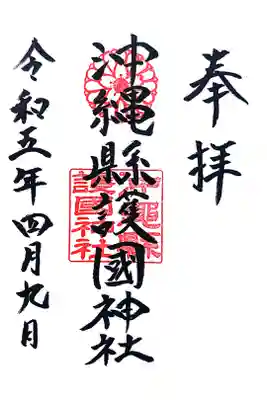 奉拝
沖縄縣護國神社
沖縄県
護国神社
令和五年四月九日